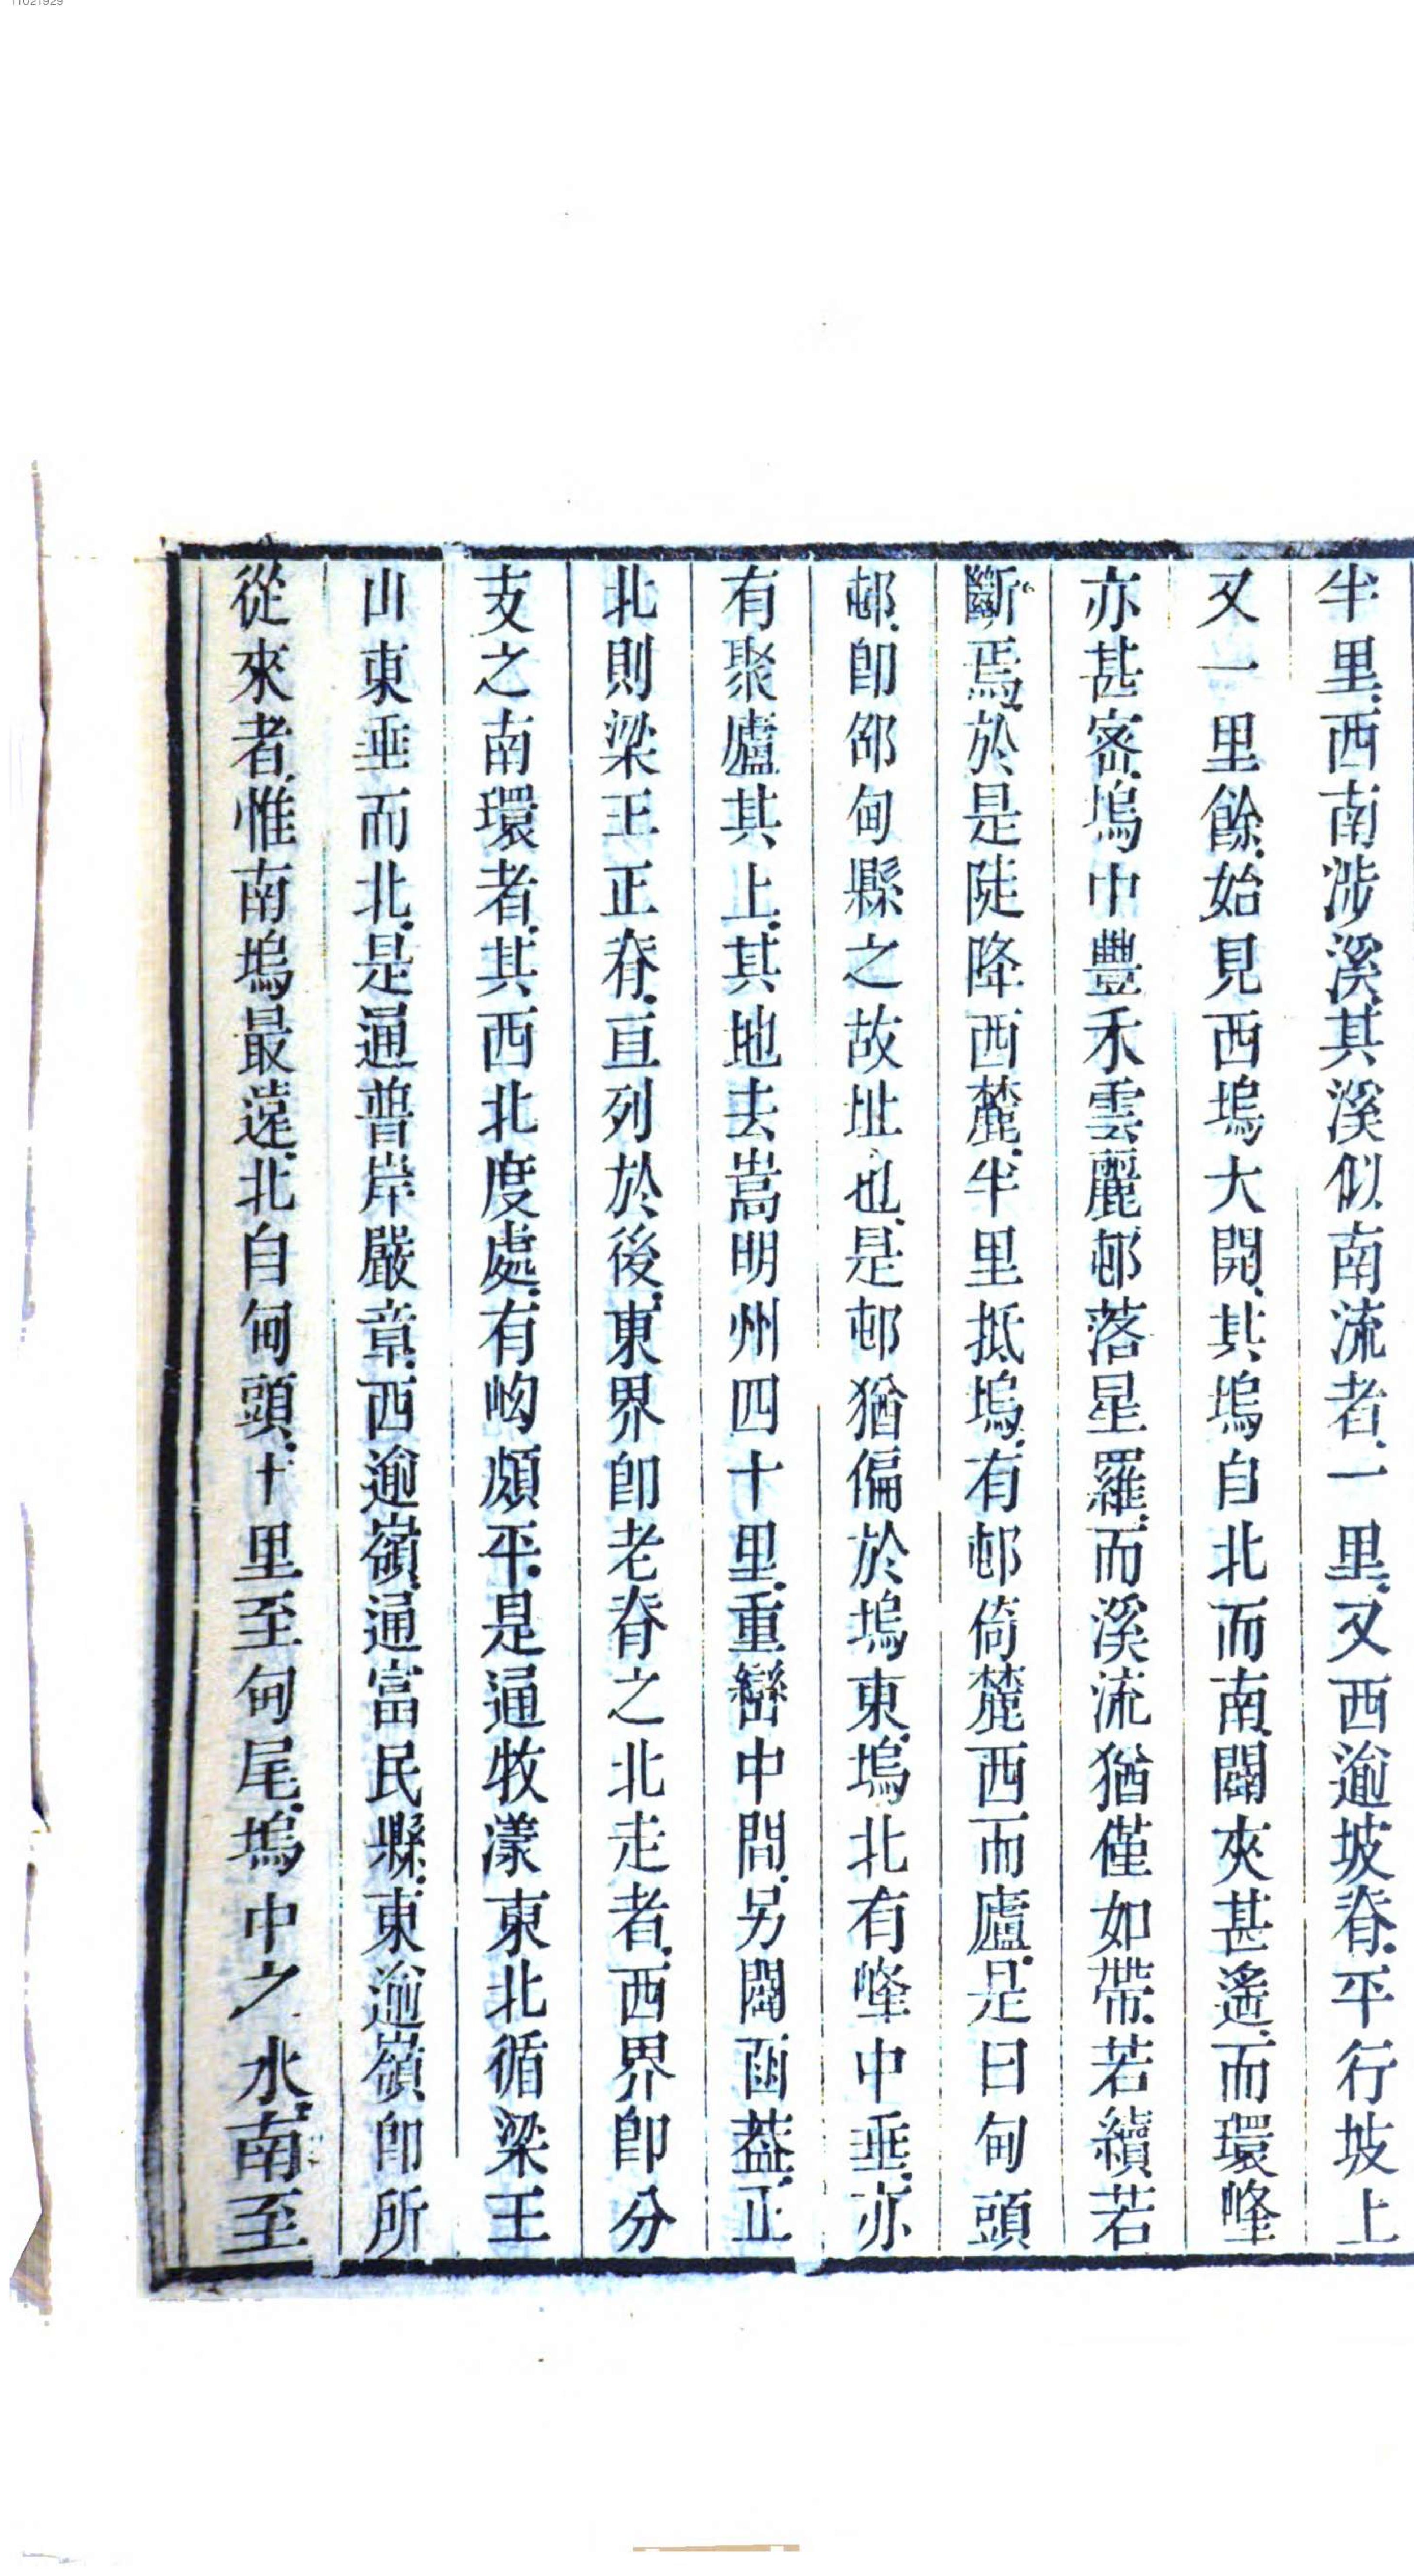 半里西南涉溪其溪似南流者一里又西逾坡脊平行坡上
又一里餘始見西塢大開其塢自北而南闢夾甚遙而環峰
亦甚密塢中豐禾雲麗邨落星羅而溪流猶僅如帶若續若
斷焉於是陡降西麓半里抵塢有邨倚麓西而廬是曰甸頭
邨即邵甸縣之故址也是邨猶偏於塢東塢北有峰中垂亦
有聚廬其上其地去嵩明州四十里重巒中間另闢函蓋正
北則梁王正脊直列於後東界即老脊之北走者西界即分
支之南環者其西北度處有峋頗平是通牧漾東北循梁王
山東垂而北是通普岸嚴章西逾嶺通富民縣東逾嶺即所
從來者惟南塢最遠北自甸頭十里至甸尾塢中之水南至
11021929